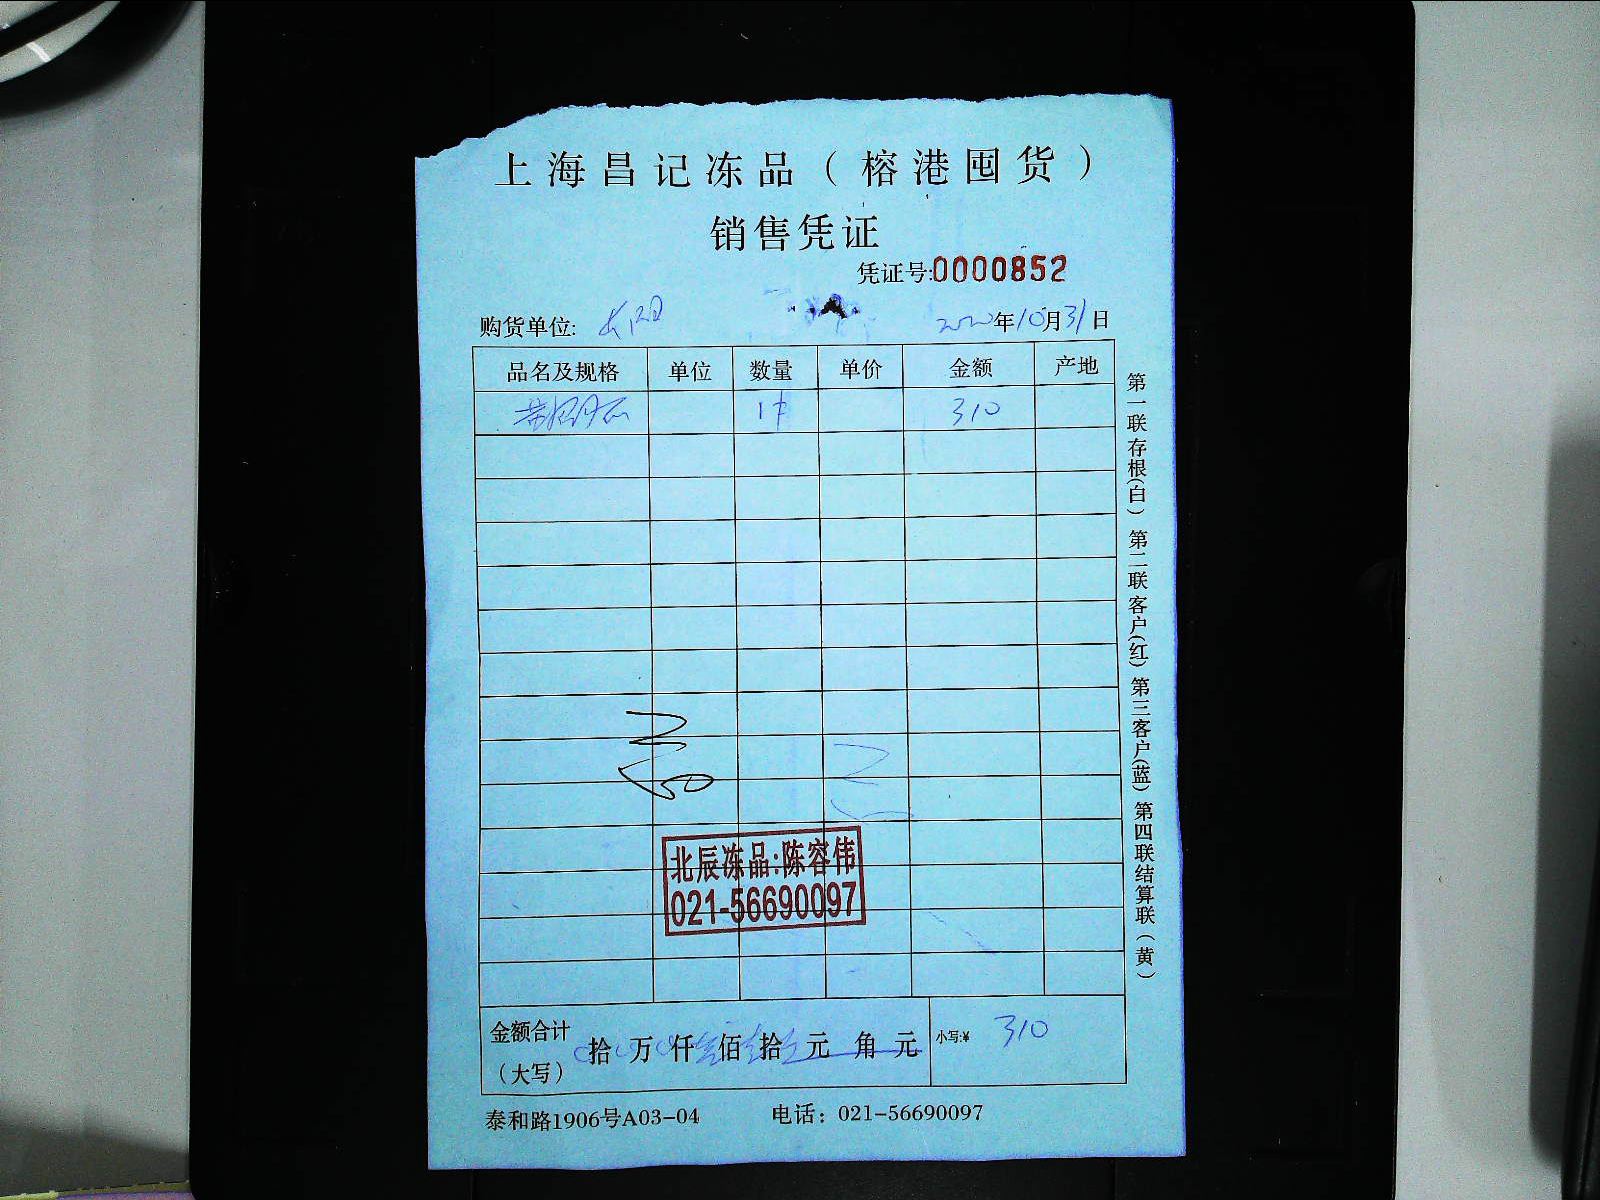 上海昌记冻品（榕港囤货）
销售凭证
凭证号:0000852
购货单位: 2020年10月31日
品名及规格 单位 数量 单价 金额 产地
1件 310
北辰冻品:陈容伟
021-56690097
金额合计（大写） 拾 万 仟 佰 拾 元 角 元 小写:¥ 310
泰和路1906号A03-04 电话：021-56690097
第一联存根(白) 第二联客户(红) 第三客户(蓝) 第四联结算联（黄）